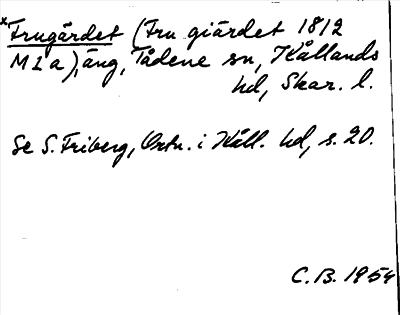 *Frugärdet (Fru giärdet 1812
M2a), äng, Tådene sn, Kållands
hd, Skar. l.
Se S. Friberg, Ortn. i Kåll. hd, s. 20.
C. B. 1954